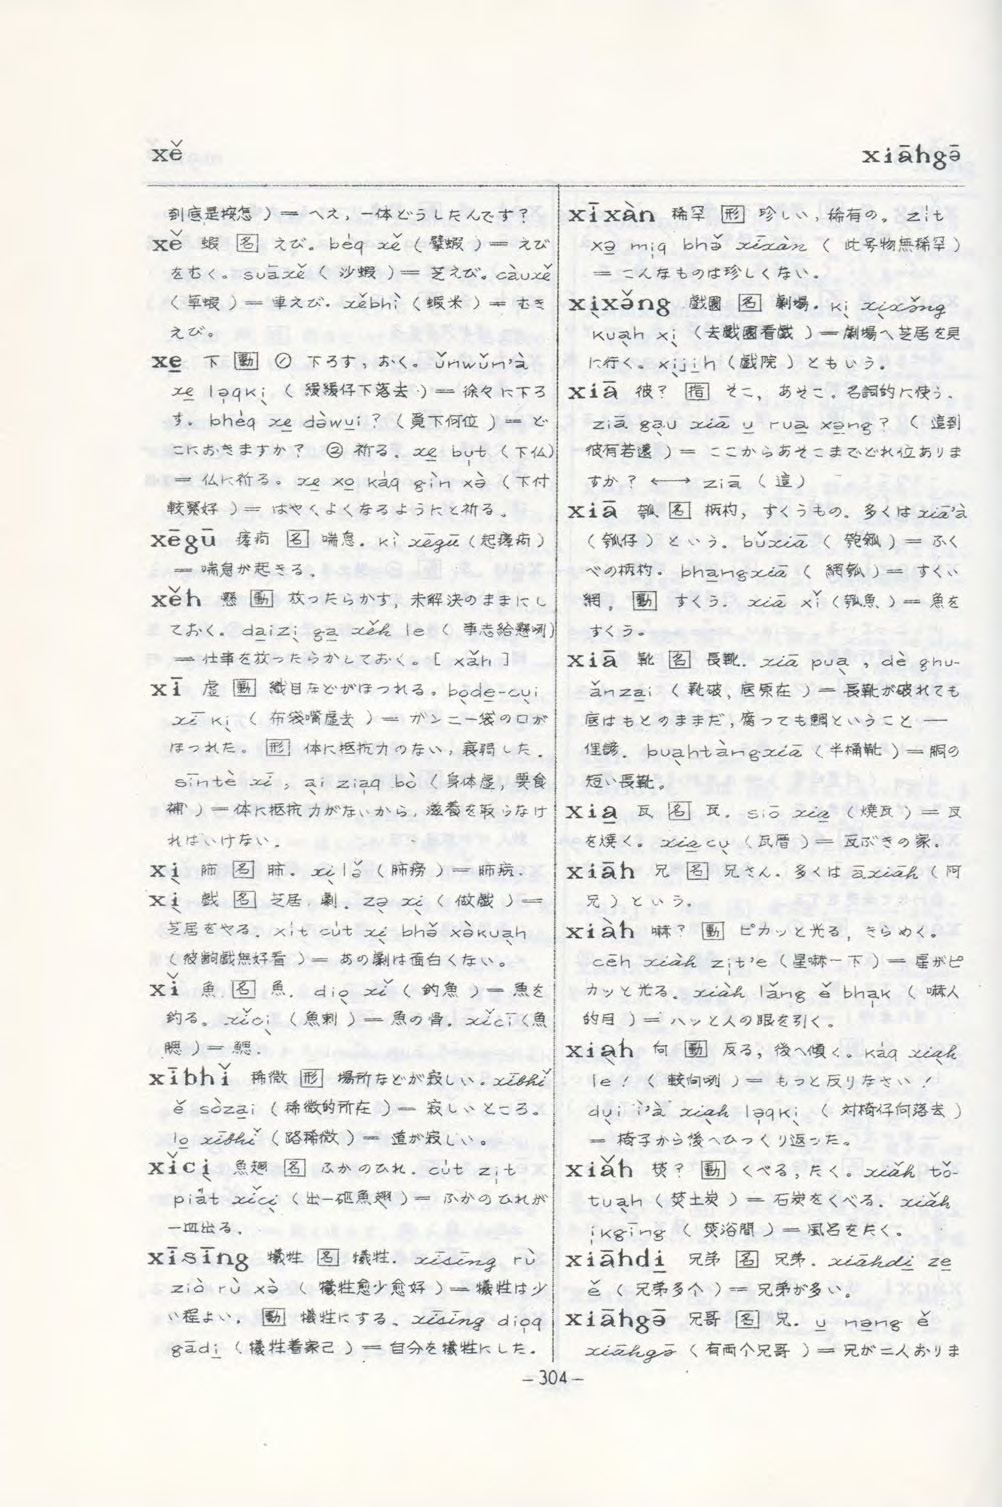 xě
xiāhgə̄
到底是按怎 ) ＝ へえ, 一体どうしたんです?
xě 蝦 名 えび。 bèq xě ( 擘蝦 ) ＝ えび
をむく。 suāxě ( 沙蝦 ) ＝ 芝えび。 càuxě
( 草蝦 ) ＝ 車えび. xěbhì ( 蝦米 ) ＝ むき
えび。
xe̱ 下 動 ① 下ろす, おく。 ǔnwǔn'à
xe̱ ləqkị ( 緩緩仔下落去 ) ＝ 徐々に下ろ
す。 bhéq xe̱ dàwụi ? ( 覓下何位 ) ＝ ど
こにおきますか? ② 祈る. xe̱ bụt ( 下仏)
＝ 仏に祈る。 xe̱ xọ káq gìn xə̀ ( 下付
較緊好 ) ＝ はやくよくなるようにと祈る.
xēgū 痚疴 名 喘息. kì xēgū ( 起痚疴 )
＝ 喘息が起きる.
xěh 懸 動 放ったらかす, 未解決のままにし
ておく. daizị ga̱ xěh le ( 事志給懸咧)
＝ 仕事を放ったらかしておく。 [ xǎh ]
xī 虚 動 織目などがほつれる。 bọde-cụi
xī kị ( 布袋嘴虚去 ) ＝ ガンニー袋の口が
ほつれた。 形 体に抵抗力のない, 衰弱した.
sīntè xī , ại ziaq bò ( 身体虚, 要食
補 ) ＝ 体に抵抗力がないから, 滋養を取らなけ
ればいけない.
xị 肺 名 肺. xị lə̌ ( 肺癆 ) ＝ 肺病.
xị 戲 名 芝居, 劇. zə̣ xị ( 做戲 ) ＝
芝居をやる. xít cút xị bhə̌ xə̀kuạh
( 彼齣戲無好看 ) ＝ あの劇は面白くない。
xǐ 魚 名 魚. diọ xǐ ( 釣魚 ) ＝ 魚を
釣る。 xǐcị ( 魚刺 ) ＝ 魚の骨. xǐcī (魚
腮 ) ＝ 鰓.
xībhǐ 稀微 形 場所などが寂しい. xībhǐ
ě sòzai ( 稀微的所在 ) ＝ 寂しいところ。
lo̱ xībhǐ ( 路稀微 ) ＝ 道が寂しい。
xǐcị 魚翅 名 ふかのひれ. cút zịt
piát xǐcị ( 出一砸魚翅 ) ＝ ふかのひれが
一皿出る.
xīsīng 犠牲 名 犠牲. xīsīng rù
ziò rù xə̀ ( 犠牲愈少愈好 ) ＝ 犠牲は少
い程よい. 動 犠牲にする. xīsīng dioq
gādị ( 犠牲着家己 ) ＝ 自分を犠牲にした.
xīxàn 稀罕 形 珍しい, 稀有の。 zịt
xə̱ mịq bhə̌ xīxàn ( 此号物無稀罕 )
＝ こんなものは珍しくない.
xịxə̌ng 戲園 名 劇場. kị xịxə̌ng
kuạh xị ( 去戲園看戲 ) ＝ 劇場へ芝居を見
に行く。 xịịịh ( 戲院 ) ともいう.
xiā 彼? 指 そこ, あそこ. 名詞的に使う.
ziā gạu xiā u̱ rua̱ xə̱ng ? ( 這到
彼有若遠 ) ＝ ここからあそこまでどれ位ありま
すか? ⟷ ziā ( 這 )
xiā 瓠 名 柄杓, すくうもの. 多くは xiā'à
( 瓠仔 ) という. bǔxiā ( 匏瓠 ) ＝ ふく
べの柄杓. bhangxiā ( 網瓠 ) ＝ すくい
網. 動 すくう. xiā xǐ (瓠魚 ) ＝ 魚を
すくう。
xiā 靴 名 長靴. xiā puạ , dè ghu-
ǎnzai ( 靴破, 底原在 ) ＝ 長靴が破れても
底はもとのままだ, 腐っても鯛ということ ──
俚諺. buạhtàngxiā ( 半桶靴 ) ＝ 胴の
短い長靴。
xia̱ 瓦 名 瓦. siō xia̱ ( 焼瓦 ) ＝ 瓦
を焼く。 xia̱cụ ( 瓦厝 ) ＝ 瓦ぶきの家.
xiāh 兄 名 兄さん. 多くは āxiāh ( 阿
兄 ) という.
xiàh 嘛? 動 ピカッと光る, きらめく。
cēh xiàh zịt'e ( 星嘛一下 ) ＝ 星がピ
カッと光る. xiàh lǎng ě bhak ( 嘛人
的目 ) ＝ ハッと人の眼を引く。
xiạh 向 動 反る, 後へ傾く。 káq xiạh
le ! ( 較向咧 ) ＝ もっと反りなさい!
dụi ì'à xiạh ləqkị ( 対椅仔向落去 )
＝ 椅子から後へひっくり返った。
xiǎh 焚? 動 くべる, たく。 xiǎh tǒ-
tuạh ( 焚土炭 ) ＝ 石炭をくべる. xiǎh
ịkgīng ( 焚浴間 ) ＝ 風呂をたく。
xiāhdị 兄弟 名 兄弟. xiāhdị ze̱
ě ( 兄弟多个 ) ＝ 兄弟が多い。
xiāhgə̄ 兄哥 名 兄. u̱ nə̱ng ě
xiāhgə̄ ( 有両个兄哥 ) ＝ 兄が二人おりま
－304－